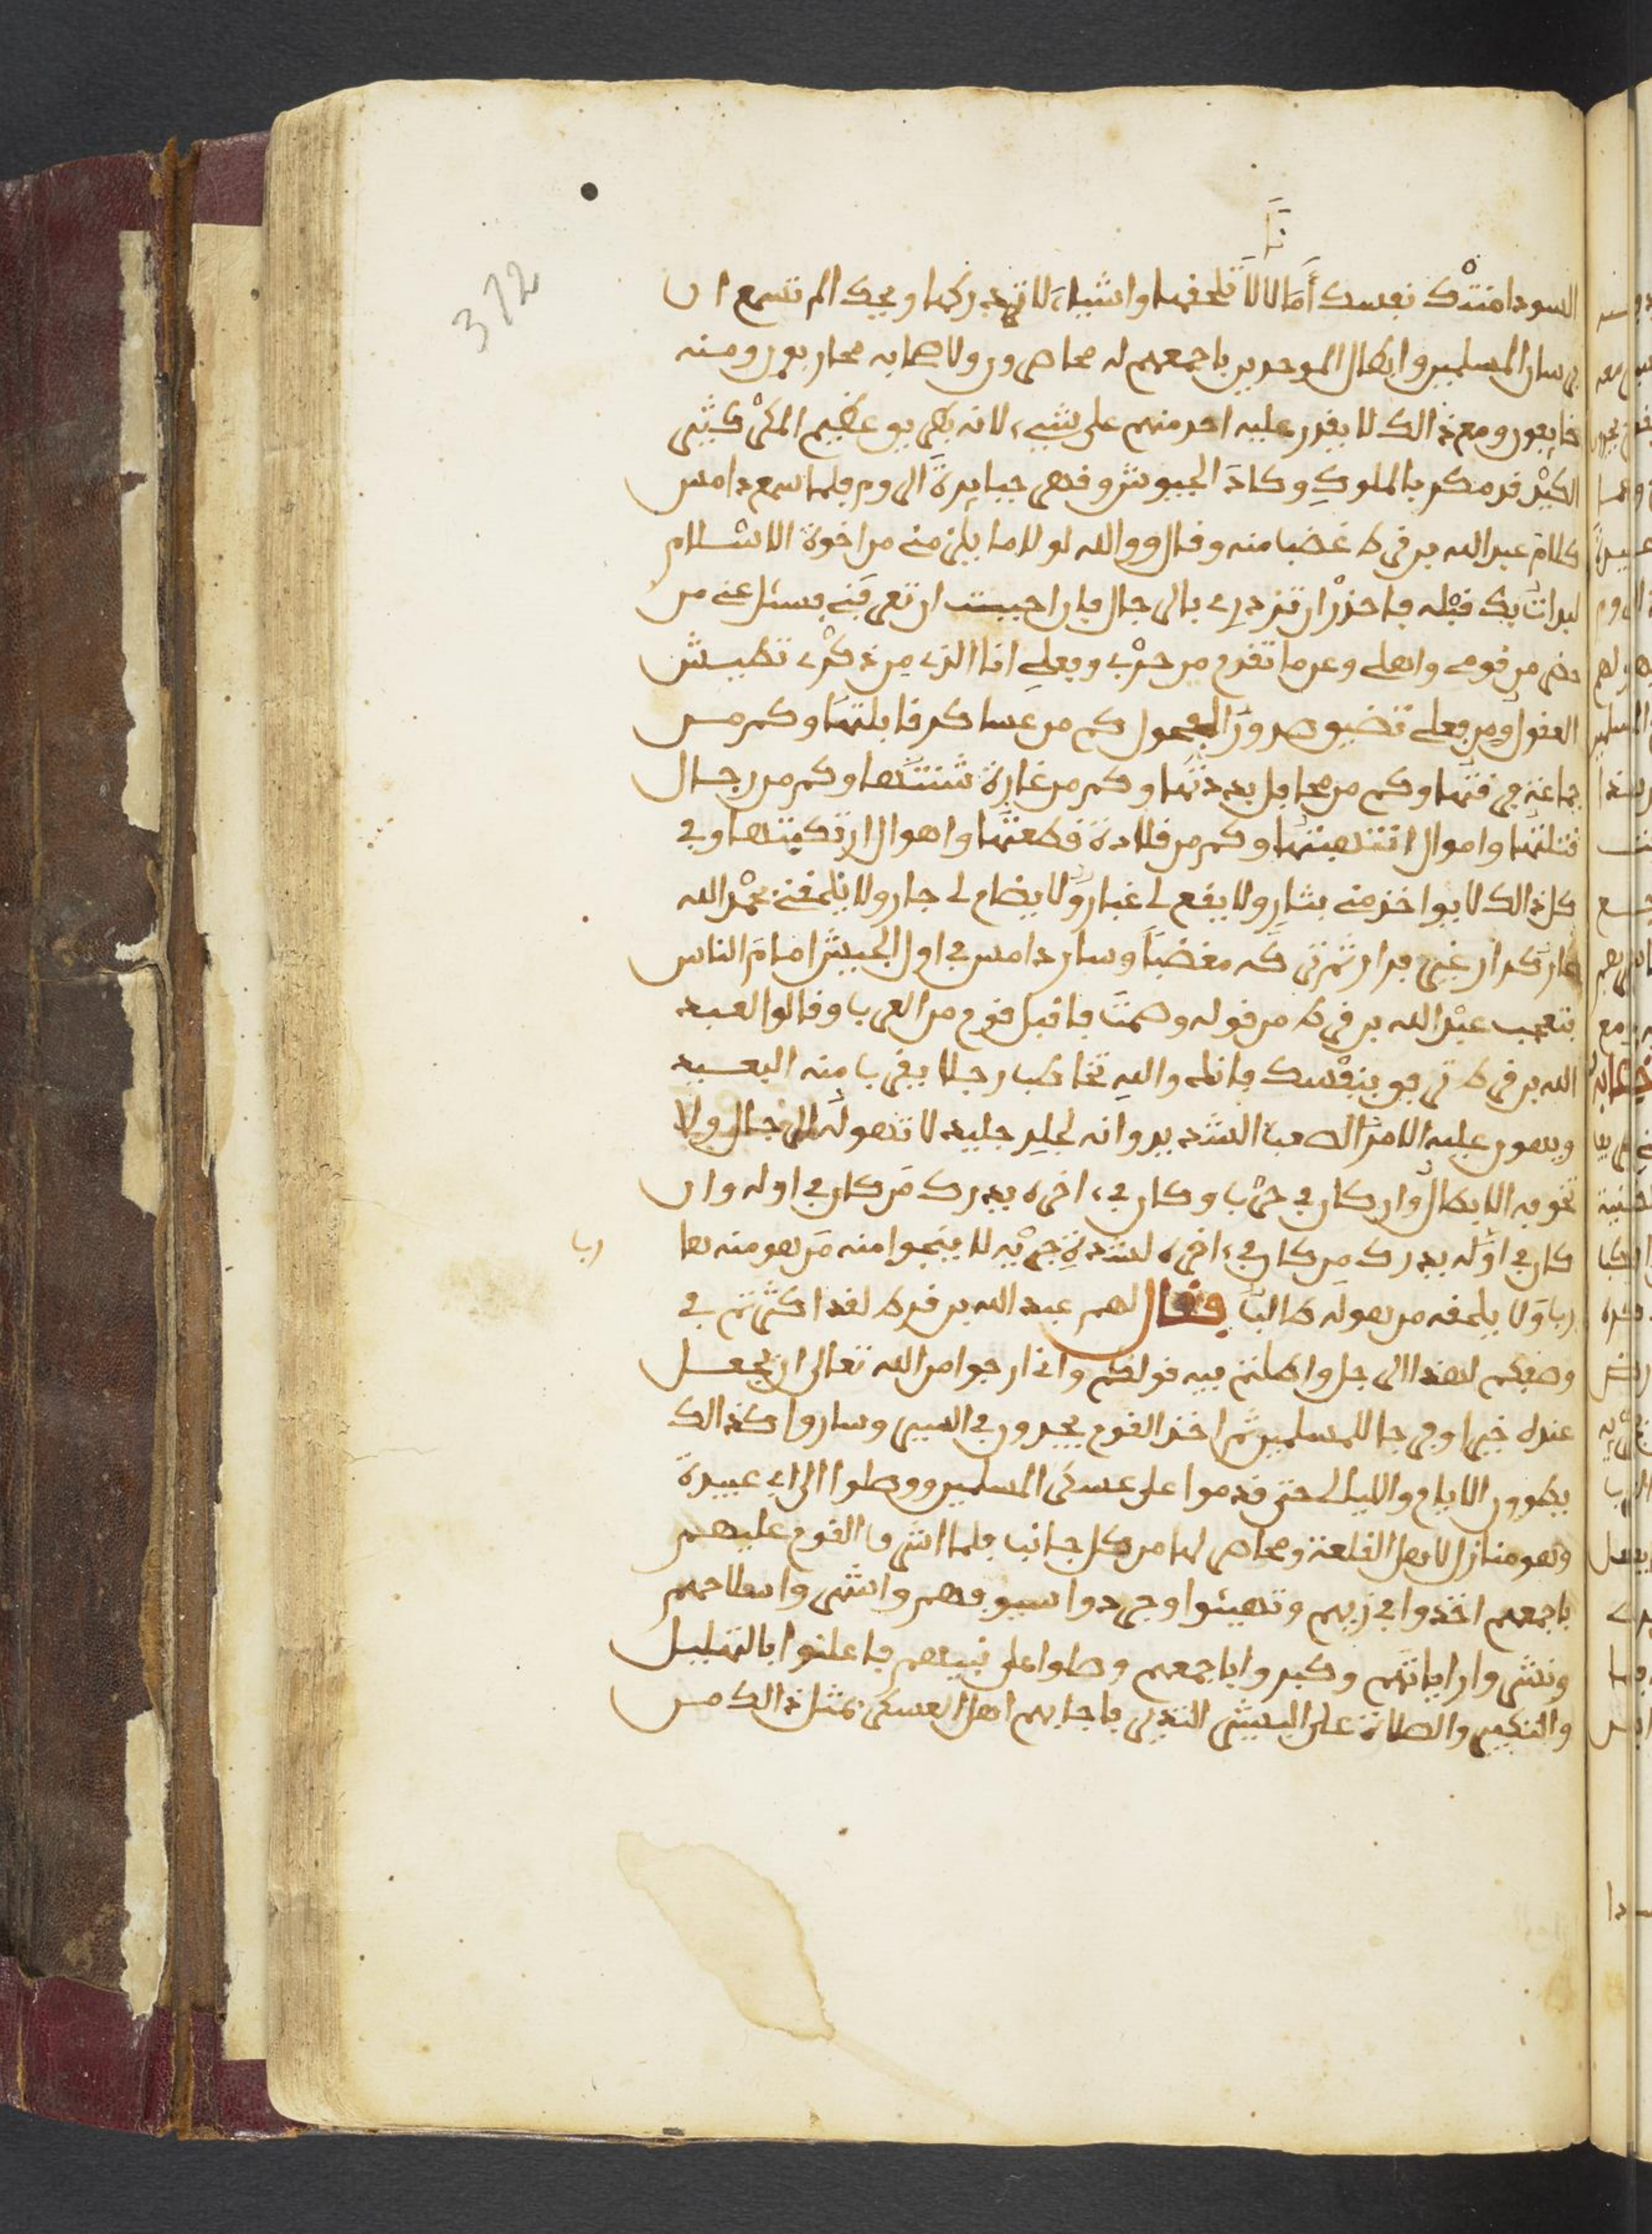 نا
372
السودا منتك نفسك أمالا لا تلحقها واشياء لا تدركها ويحك الم تسمع ان
فرسان المسلمين وابطال الموحدين باجمعهم له محاصرون ولاصحابه محاربون ومنه
خايفون ومع ذالك لا يقدر عليه احد منهم على شيء لانه بطريق عظيم المكر كثير
الكيد قد مكر بالملوك وكاد الجيوش وقهر جبابرة الروم فلما سمع دامس
كلام عبد الله بن قرط غضب منه وقال والله لولا ما يلزمني من اخوة الاسلام
لبدات بك قبله فاحذر ان تزدري بالرجال فان احببت ان تعرفني فسئل عني من
حضر من قومي واهلي وعن ما تقدم من حربي وفعلي انا الذي من ذكري تطيش
العقول ومن فعلي تضيق صدور الفحول كم من عساكر قابلتها وكم من
جماعة فرقتها وكم من محافل بددتها وكم من غارة شنتها وكم من رجال
قتلتها واموال انتهبتها وكم من فلاة قطعتها واهوال ارتكبتها وفي
كل ذالك لا يواخذ مني بثار ولا يقع لي غبار ولا يضام لي جار ولا يلحقني بحمد الله
عار كرار غير فرار ثم تركه مغضبا وسار دامس في اول الجيش امام الناس
فتعجب عبد الله بن قرط من قوله وصمت فاقبل قوم من العرب وقالوا لعبد
الله بن قرط ترفق بنفسك فانك والله تخاطب رجلا يقرب منه البعيد
ويهون عليه الامر الصعب الشديد وانه لجلد جليد لا تهوله الرجال ولا
تخوفه الابطال وان كان في حرب وكان في اخره يدرك من كان في اوله وان
كان في اوله يدرك من كان في اخره لشدة جريه لا ينجوا منه من هو منه ها
رب
ربا ولا يلحقه من هو له طالبا فقال لهم عبد الله بن قرط لقد اكثرتم في
وصفكم لهذا الرجل واطلتم فيه قولكم واني ارجوا من الله تعالى ان يجعل
عنده خيرا وفرجا للمسلمين ثم اخذ القوم يجدون في السير وساروا كذالك
يطوون الايام والليالي حتى قدموا على عسكر المسلمين ووصلوا الى ابي عبيدة
وهو منازل لاهل القلعة ومحاصر لها من كل جانب فلما اشرف القوم عليهم
باجمعهم اخذوا في زيهم وتهيئوا وجردوا سيوفهم واشهروا سلاحهم
ونشروا راياتهم وكبروا باجمعهم وصلوا على نبيهم فاعلنوا بالتهليل
والتكبير والصلاة على البشير النذير فاجابهم اهل العسكر بمثل ذالك من